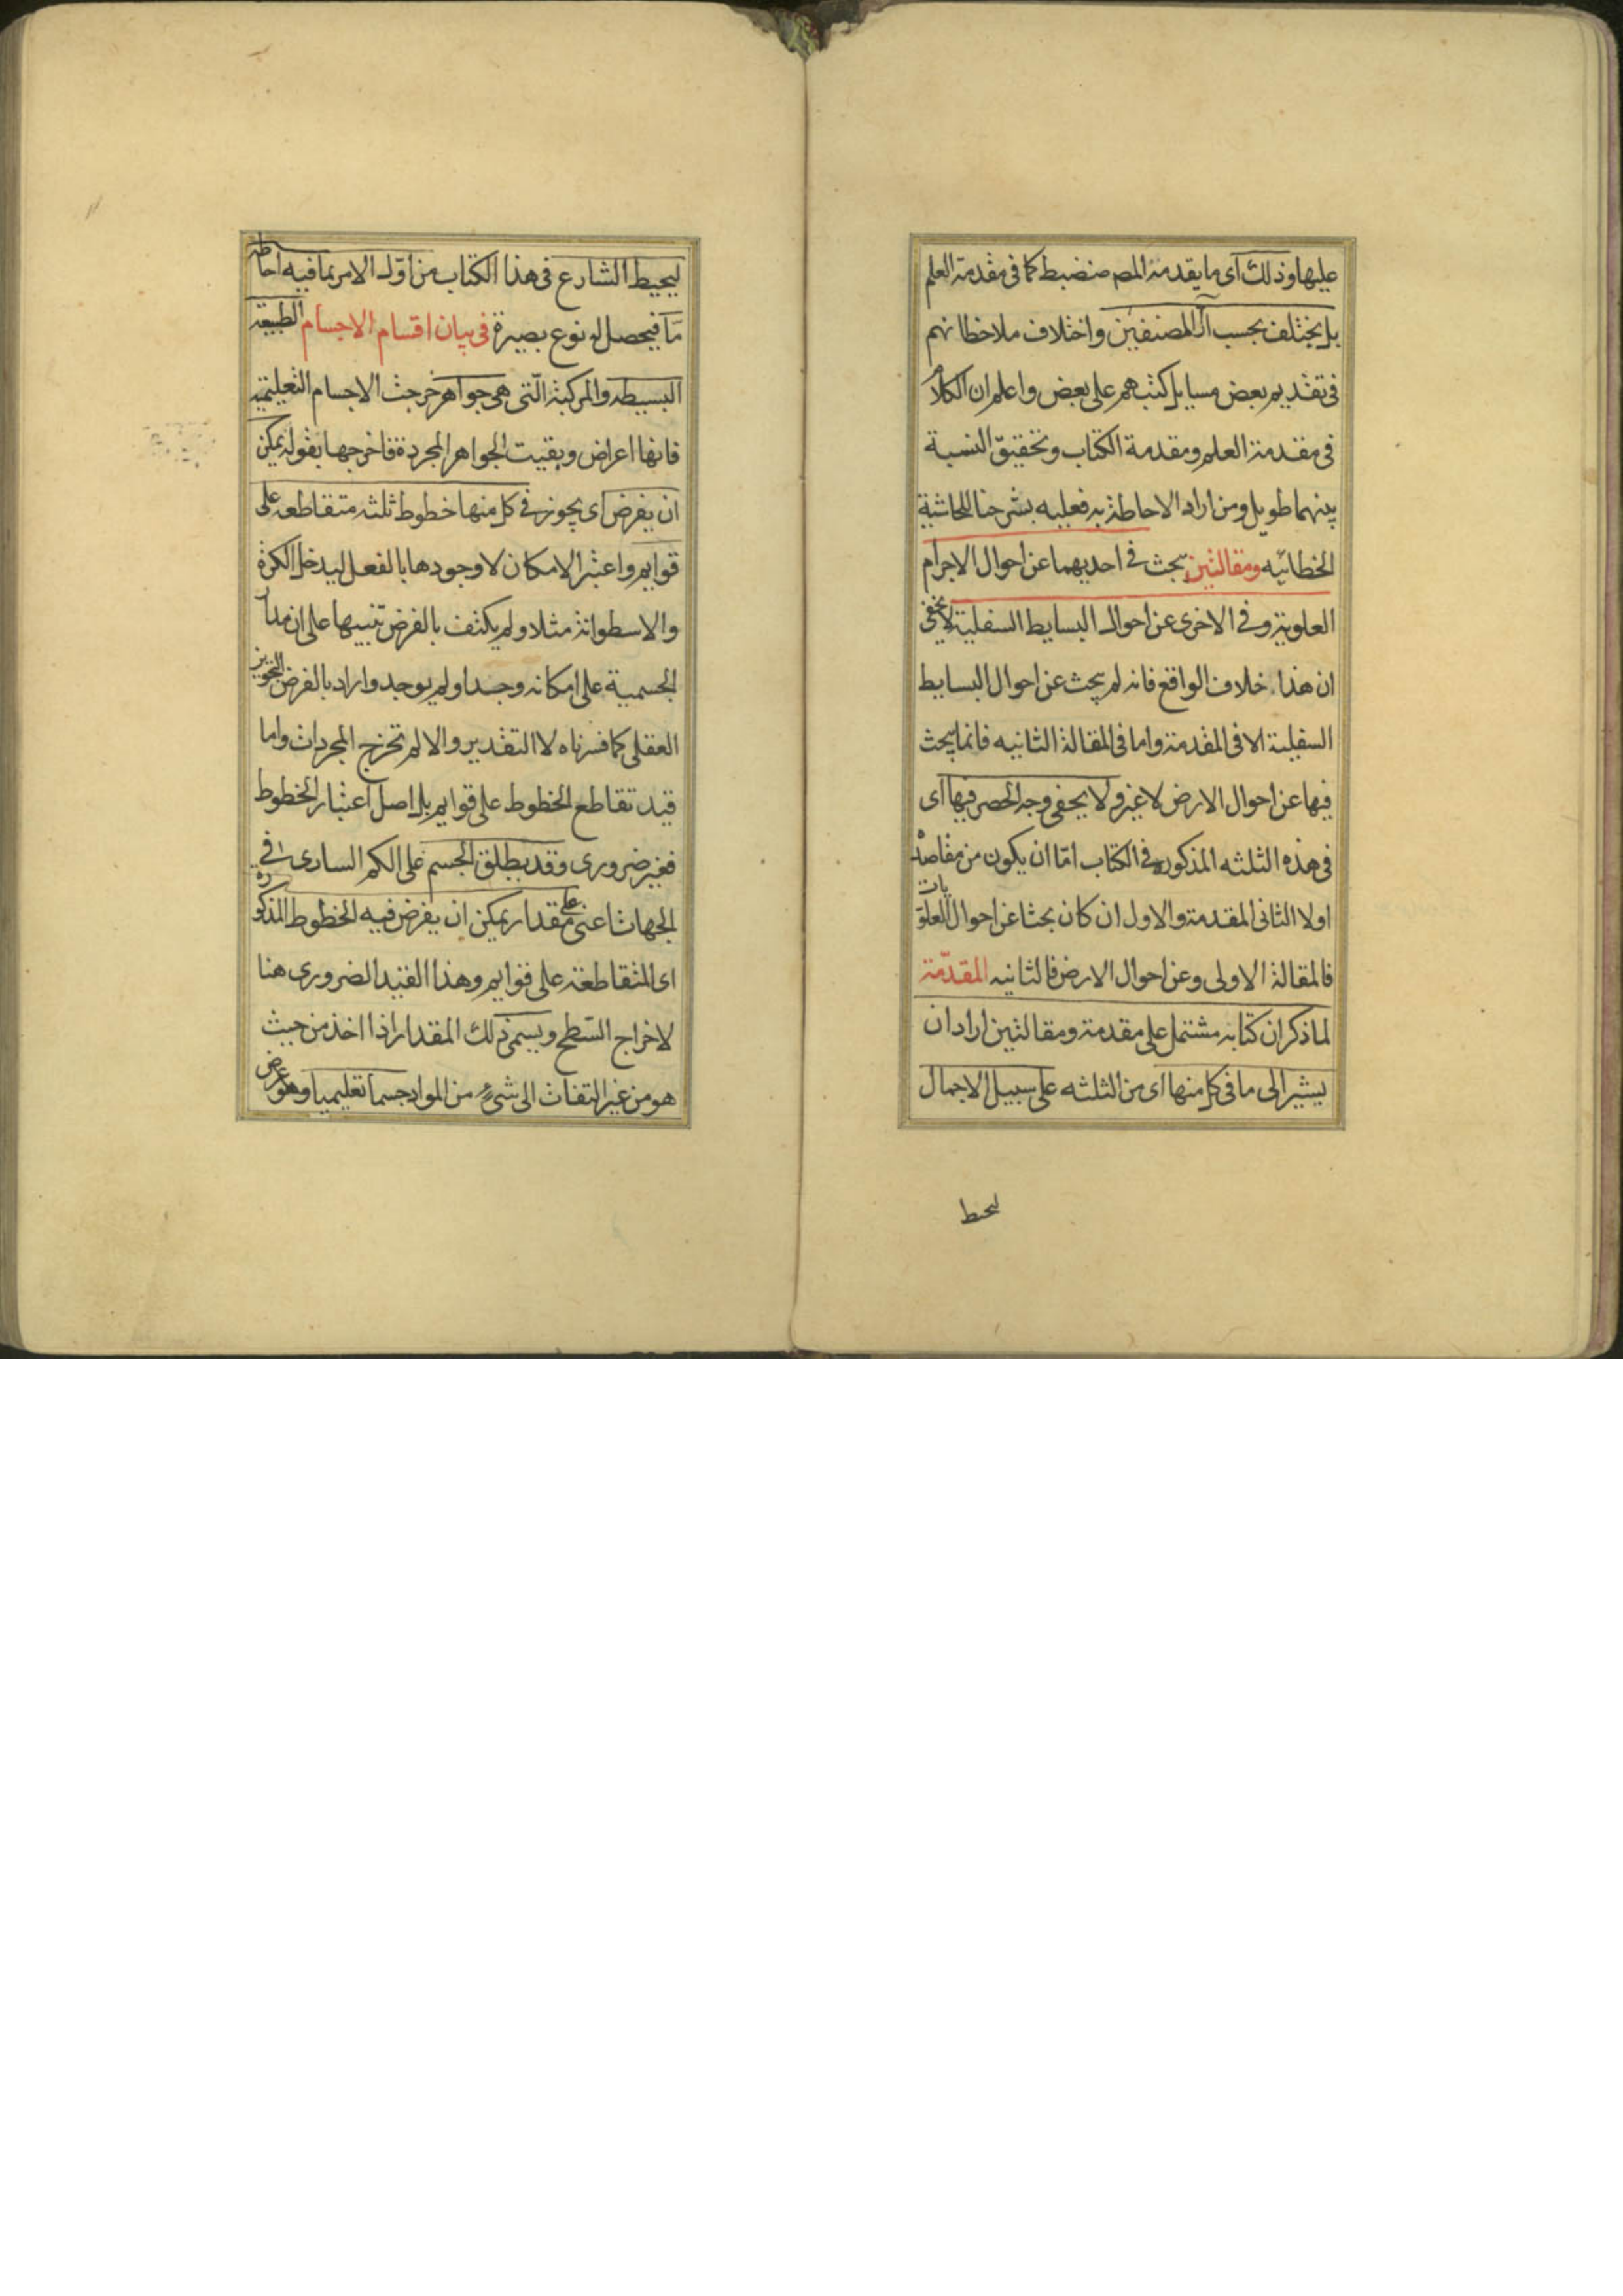 عليها وذلك اى ما يقدمه المصـ منضبط كما فى مقدمة العلم
بل يختلف بحسب آراء المصنفين واختلاف ملاحظاتهم
فى تقديم بعض مسايل كتبهم على بعض واعلم ان الكلام
فى مقدمة العلم ومقدمة الكتاب وتحقيق النسبة
بينهما طويل ومن اراد الاحاطة به فعليه بشرحنا للحاشية
الخطائيه ومقالتين يبحث فى احديهما عن احوال الاجرام
العلوية وفى الاخرى عن احوال البسايط السفلية لا يخفى
ان هذا خلاف الواقع فانه لم يبحث عن احوال البسايط
السفلية الا فى المقدمة واما فى المقالة الثانيه فانما يبحث
فيها عن احوال الارض لا غير ولا يخفى وجه الحصر فيها اى
فى هذه الثلثه المذكوره فى الكتاب امّا ان يكون من مقاصده
اولا الثانى المقدمة والاول ان كان بحثا عن احوال العلويات
فالمقالة الاولى وعن احوال الارض فالثانيه المقدّمة
لما ذكر ان كتابه مشتمل على مقدمة ومقالتين اراد ان
يشير الى ما فى كل منها اى من الثلثه على سبيل الاجمال
ليحيط
ليحيط الشارع فى هذا الكتاب من اوّل الامر بما فيه احاطه
مّا فيحصل له نوع بصيرة فى بيان اقسام الاجسام الطبيعيه
البسيطه والمركبة الّتى هى جواهر خرجت الاجسام التعليمية
فانها اعراض وبقيت الجواهر المجردة فاخرجها بقوله يمكن
ان يفرض اى يجوز فى كل منها خطوط ثلثه متقاطعه على
قوايم واعتبر الامكان لا وجودها بالفعل ليدخل الكرة
والاسطوانة مثلا ولم يكتف بالفرض تنبيها على ان مدار
الجسمية على امكانه وجد او لم يوجد واراد بالفرض التجويز
العقلى كما فسرناه لا التقدير والا لم تخرج المجردات واما
قيد تقاطع الخطوط على قوايم بل اصل اعتبار الخطوط
فغير ضرورى وقد يطلق الجسم على الكم السارى فى
الجهات اعنى على مقدار يمكن ان يفرض فيه الخطوط المذكوره
اى المتقاطعة على قوايم وهذا القيد الضرورى هنا
لاخراج السّطح ويسمى ذلك المقدار اذا اخذ من حيث
هو من غير التفات الى شئ من المواد جسما تعليميا وهو عرض